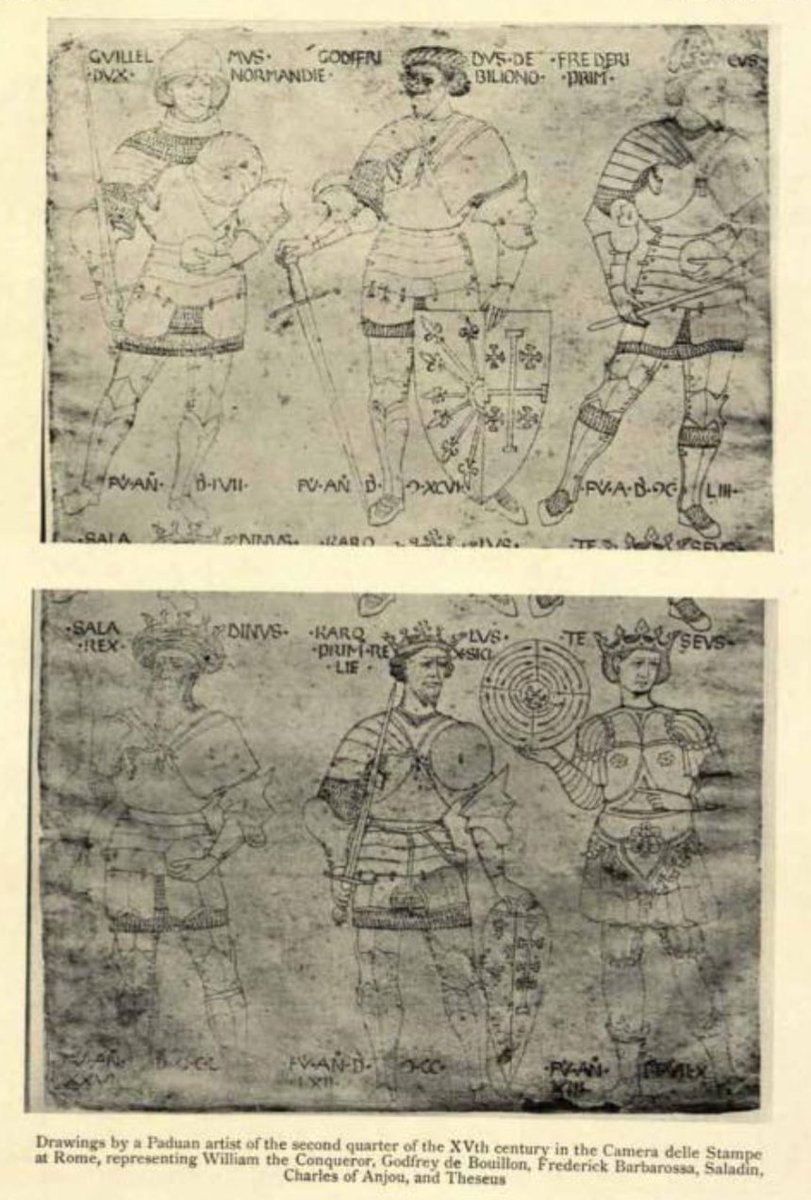 GUILLEL MVS·
·DVX· NORMANDIE·
GODIFRI DVS·DE
BILIONO·
·FREDERI CVS
·PRIM·
FV·AÑ· D·IVII·
FV·AÑ D· Ɔ·XCVI
FV·A·D·ƆC· LIII·
·SALA DINVS· KARO LVS· TE SEVS
·SALA DINVS·
·REX·
·KARO LVS·
·PRIM·RE SICI
·LIE·
TE SEVS·
FV·AÑ·
FV·AÑ·D· Ɔ·CC·
LXII·
·FV·AÑ·
XIII·
Drawings by a Paduan artist of the second quarter of the XVth century in the Camera delle Stampe
at Rome, representing William the Conqueror, Godfrey de Bouillon, Frederick Barbarossa, Saladin,
Charles of Anjou, and Theseus